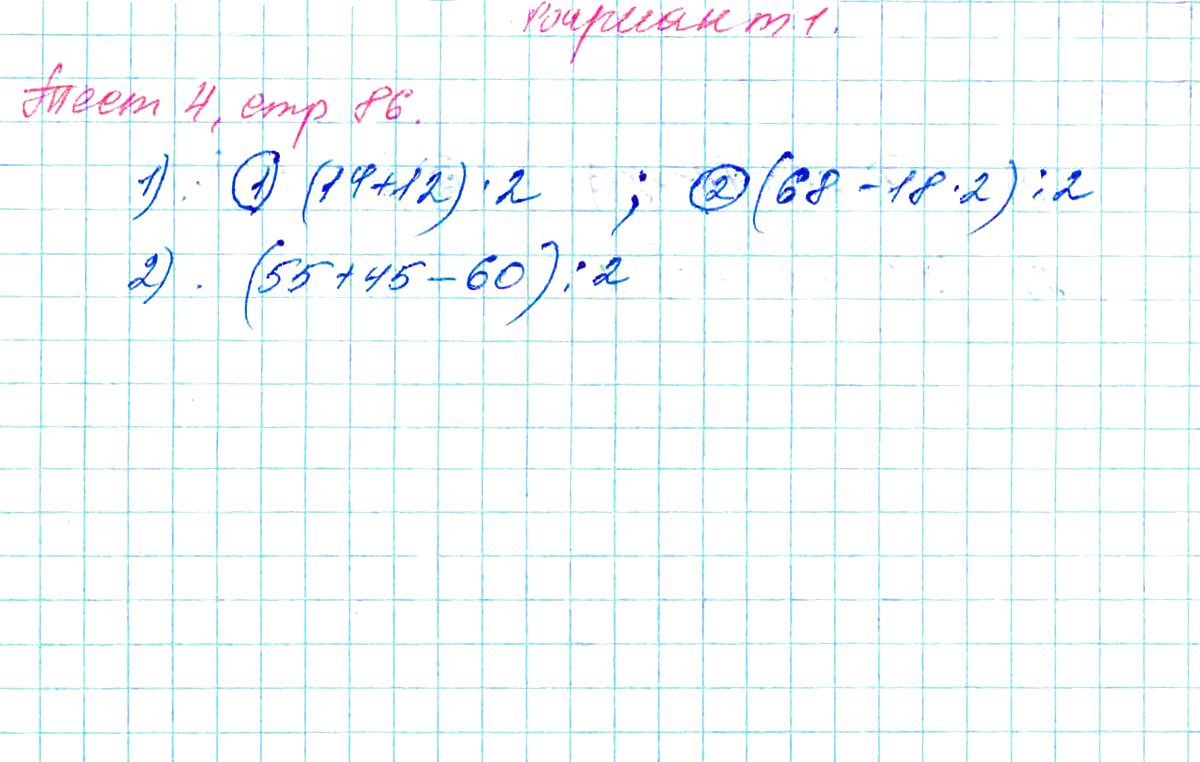 Вариант 1.
Тест 4, стр 86.
1). ① (14+12)·2 ; ② (68-18·2):2
2). (55+45-60):2